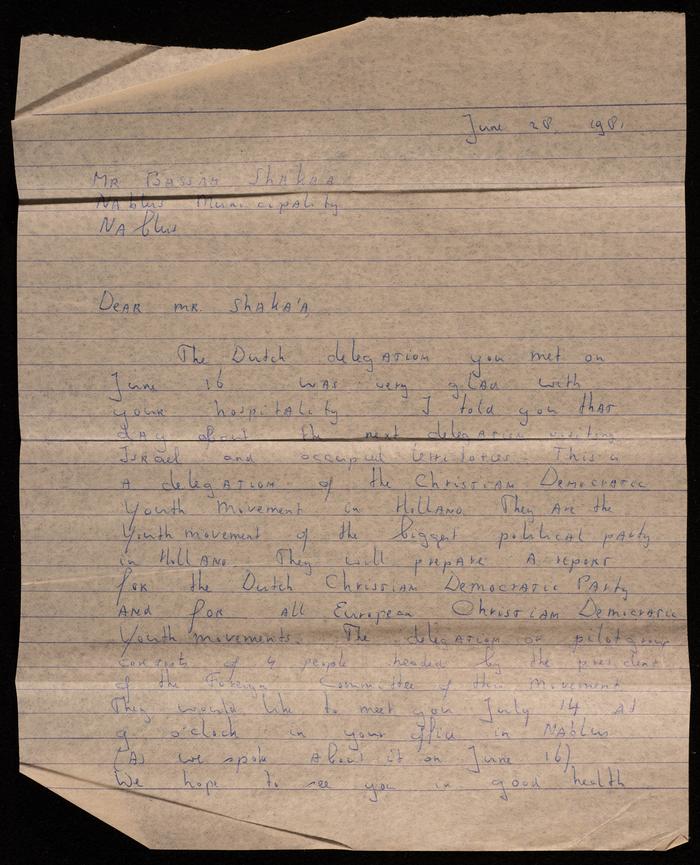 June 28 1981
Mr Bassam Shakaa
Nablus Municipality
Nablus
Dear mr. Shaka'a,
The Dutch delegation you met on
June 16 was very glad with
your hospitality. I told you that
day about the next delegation visiting
Israel and occupied territories. This is
a delegation of the Christian Democratic
Youth Movement in Holland. They are the
Youth movement of the biggest political party
in Holland. They will prepare a report
for the Dutch Christian Democratic Party
and for all European Christian Democratic
Youth movements. The delegation or pilotgroup
consists of 4 people headed by the president
of the Foreign Committee of this movement.
They would like to meet you July 14 at
9 o'clock in your office in Nablus
(As we spoke about it on June 16)
We hope to see you in good health